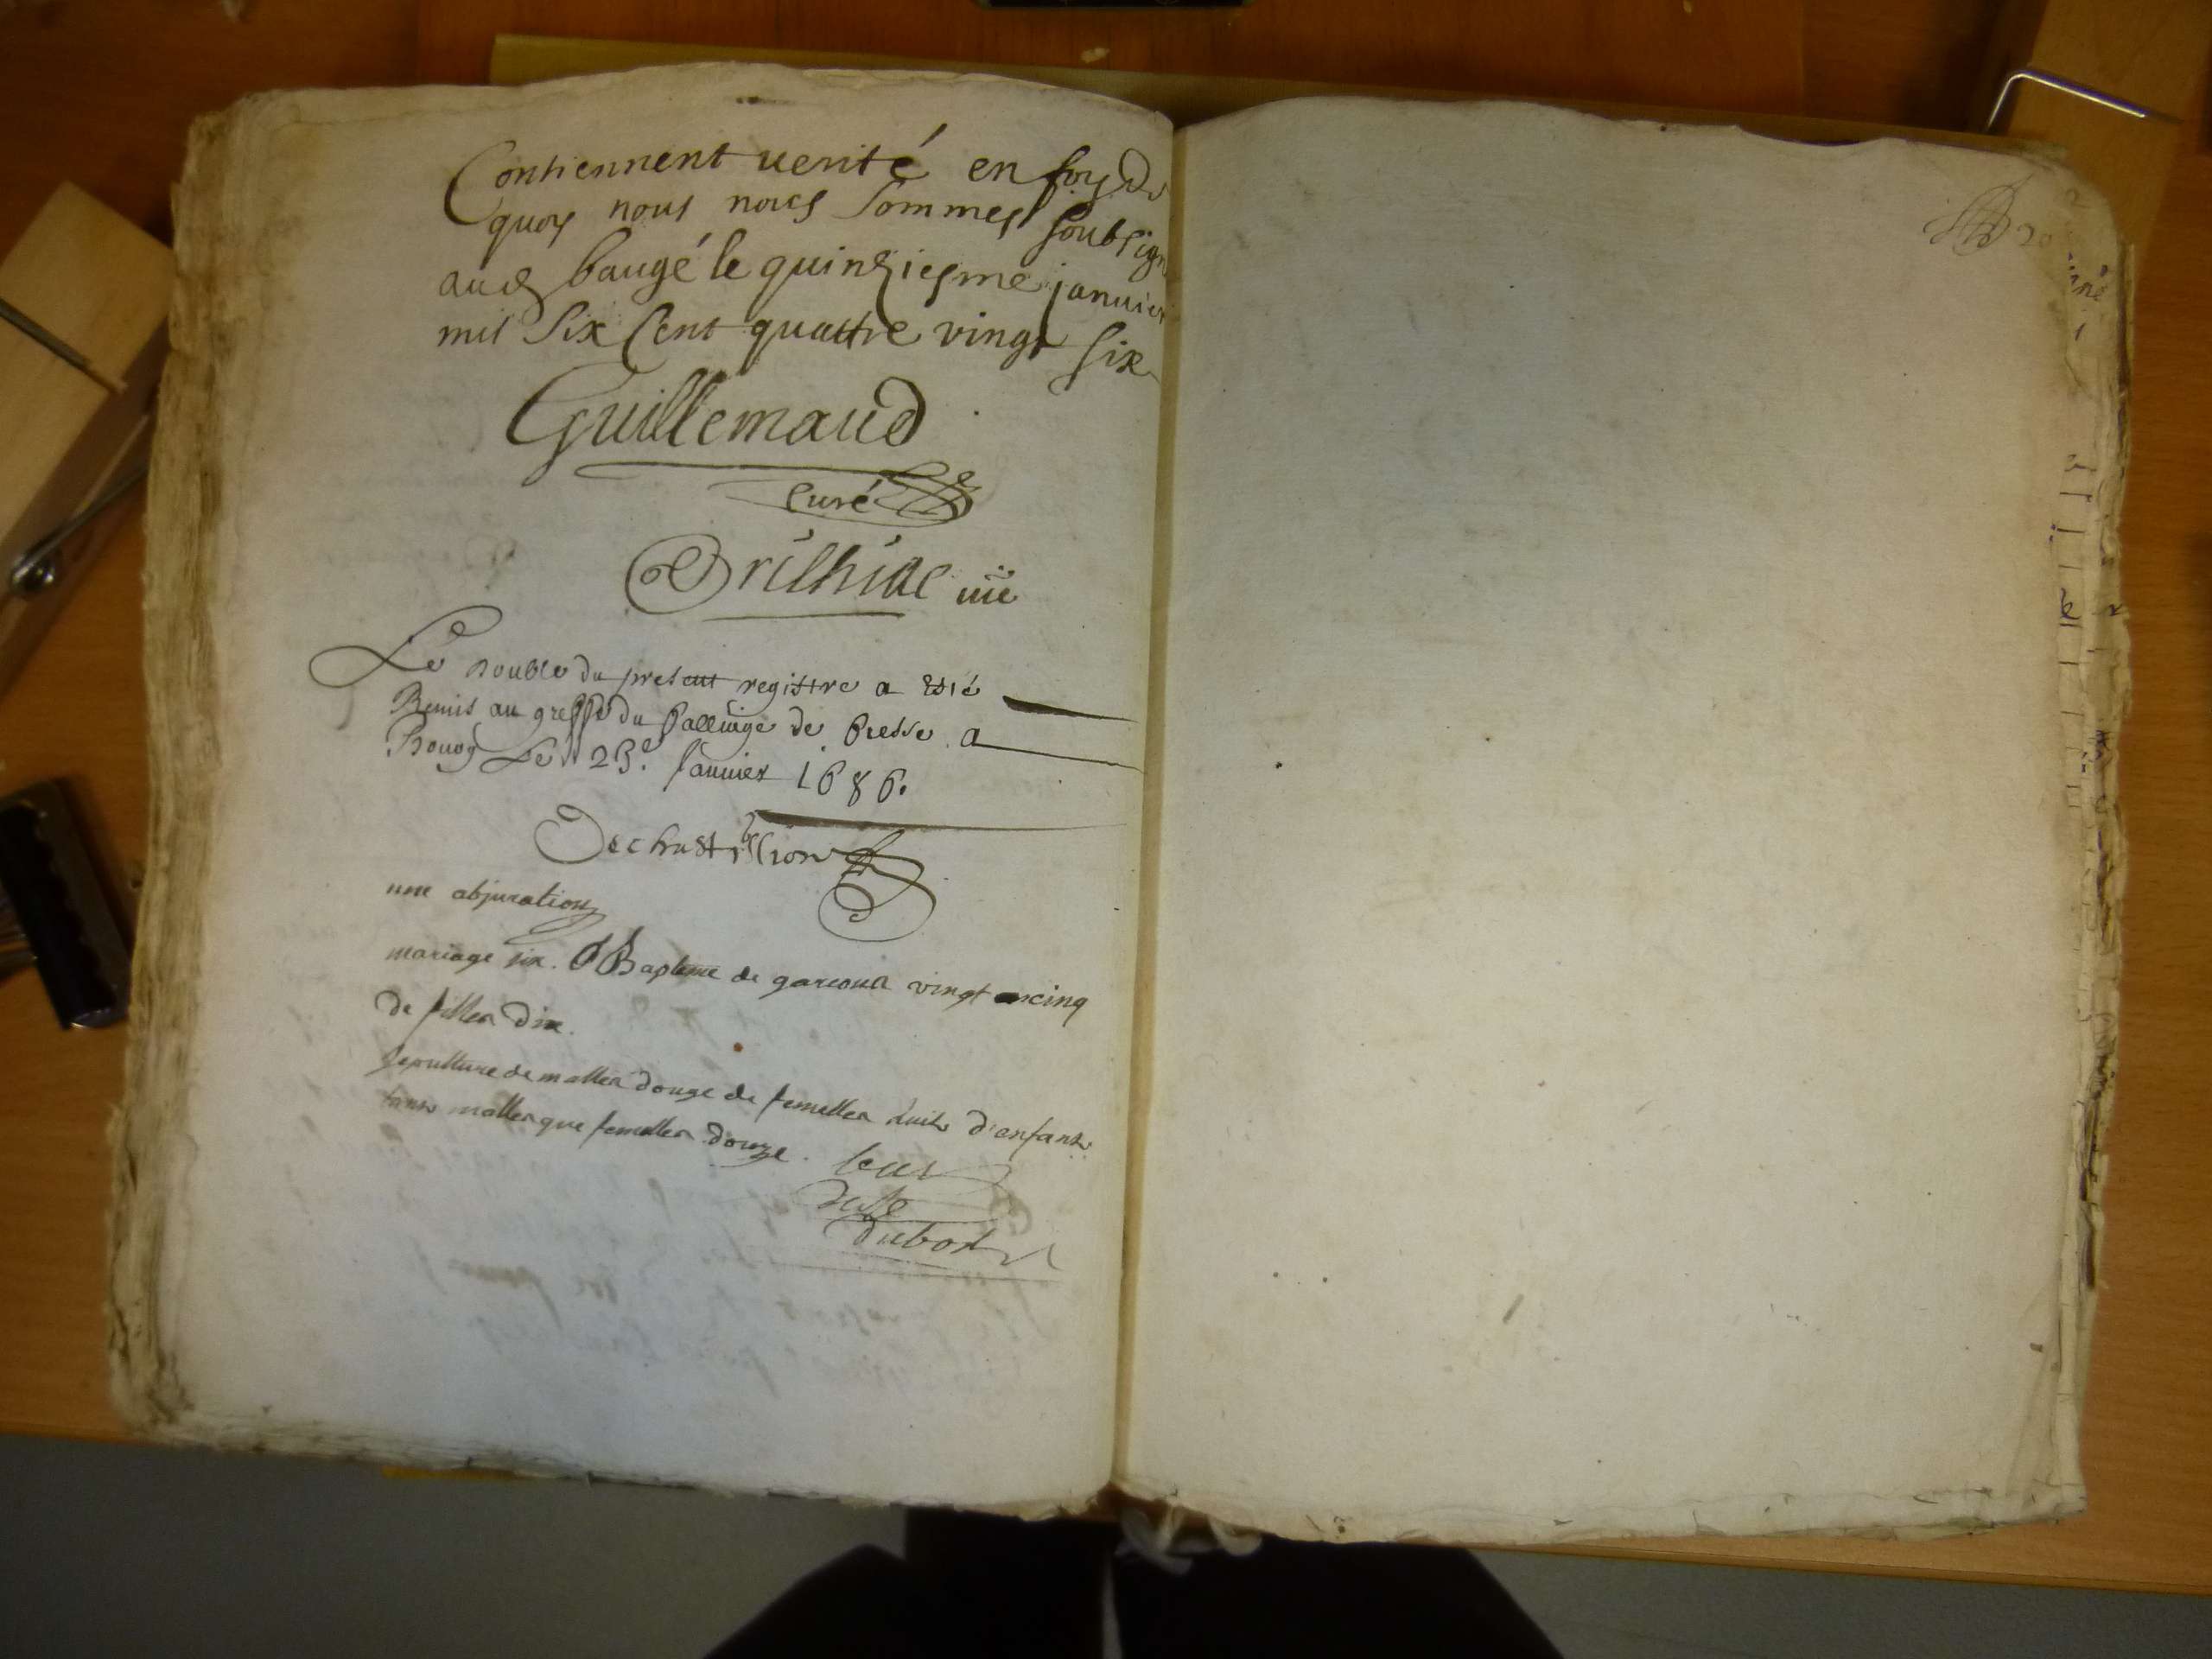 Contiennent verité en foy de
quoy nous nous sommes soubsign
aud baugé le quinziesme januier
mil six cent quattre vingt six
Guillemaud
curé
Brilhiac vic̄
Le double du present registre a esté
Remis au greffe du bailliage de bresse a
Bourg Le 23e. Januier 1686.
Dechastillion
une abjuration
mariage six. Bapteme de garcons vingt cinq
de filles dix.
sepulture de malles douze de femelles huit d'enfans
tans malles que femelles douze.
dubost
20